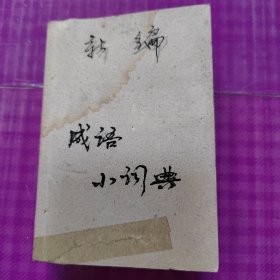 新编
成语
小词典